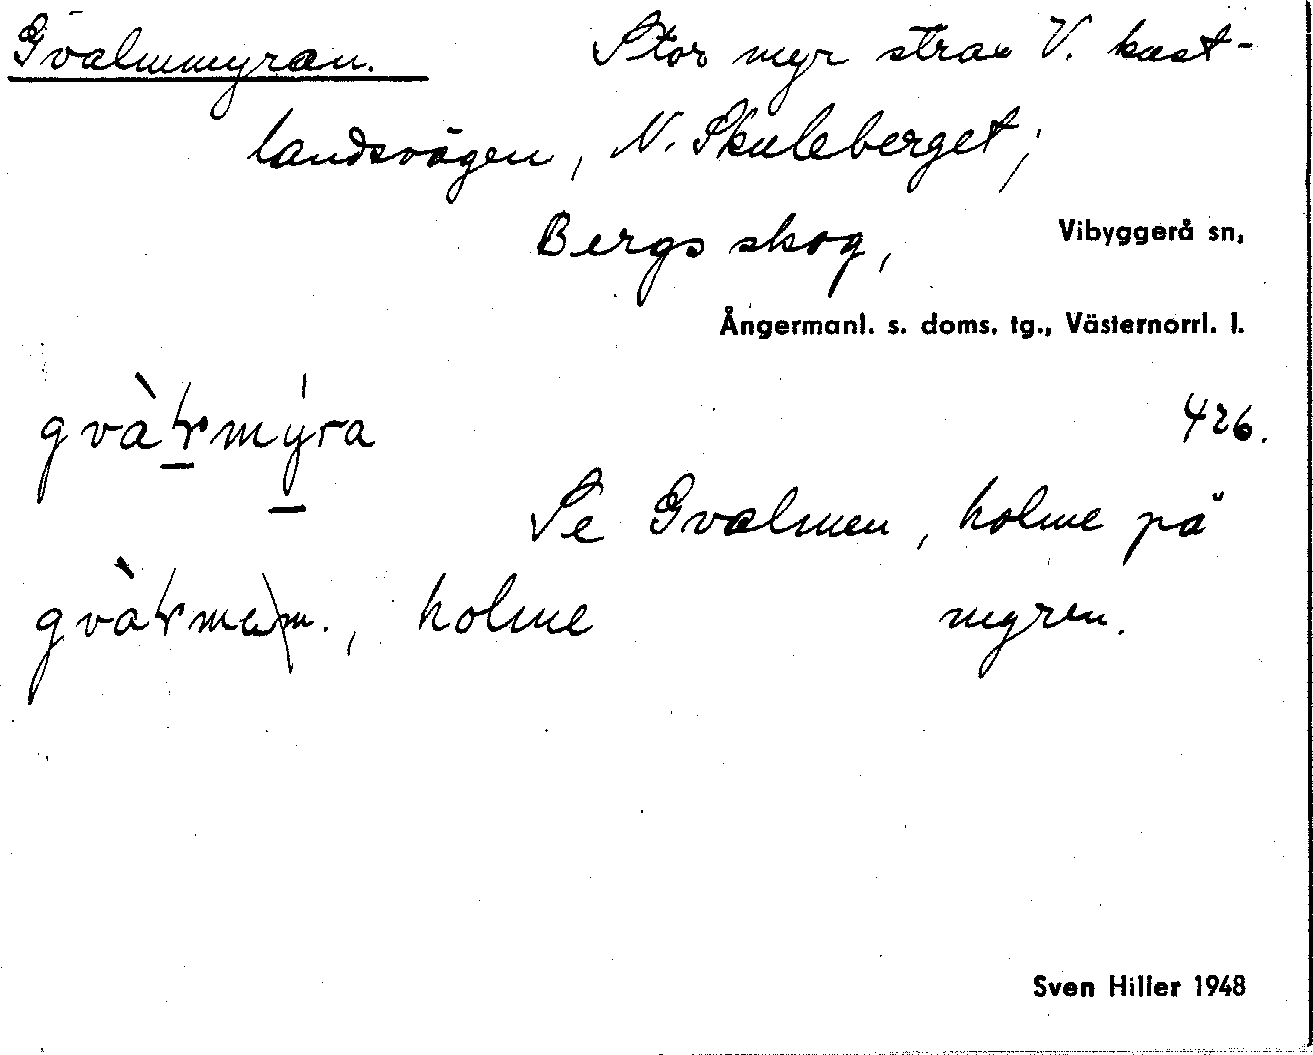 Gvalmmyran. Stor myr strax V. kust-
landsvägen, N. Skuleberget;
Bergs skog, Vibyggerå sn,
Ångermanl. s. doms. tg., Västernorrl. l.
426.
Se Gvalmen, holme på
holme myren.
Sven Hiller 1948